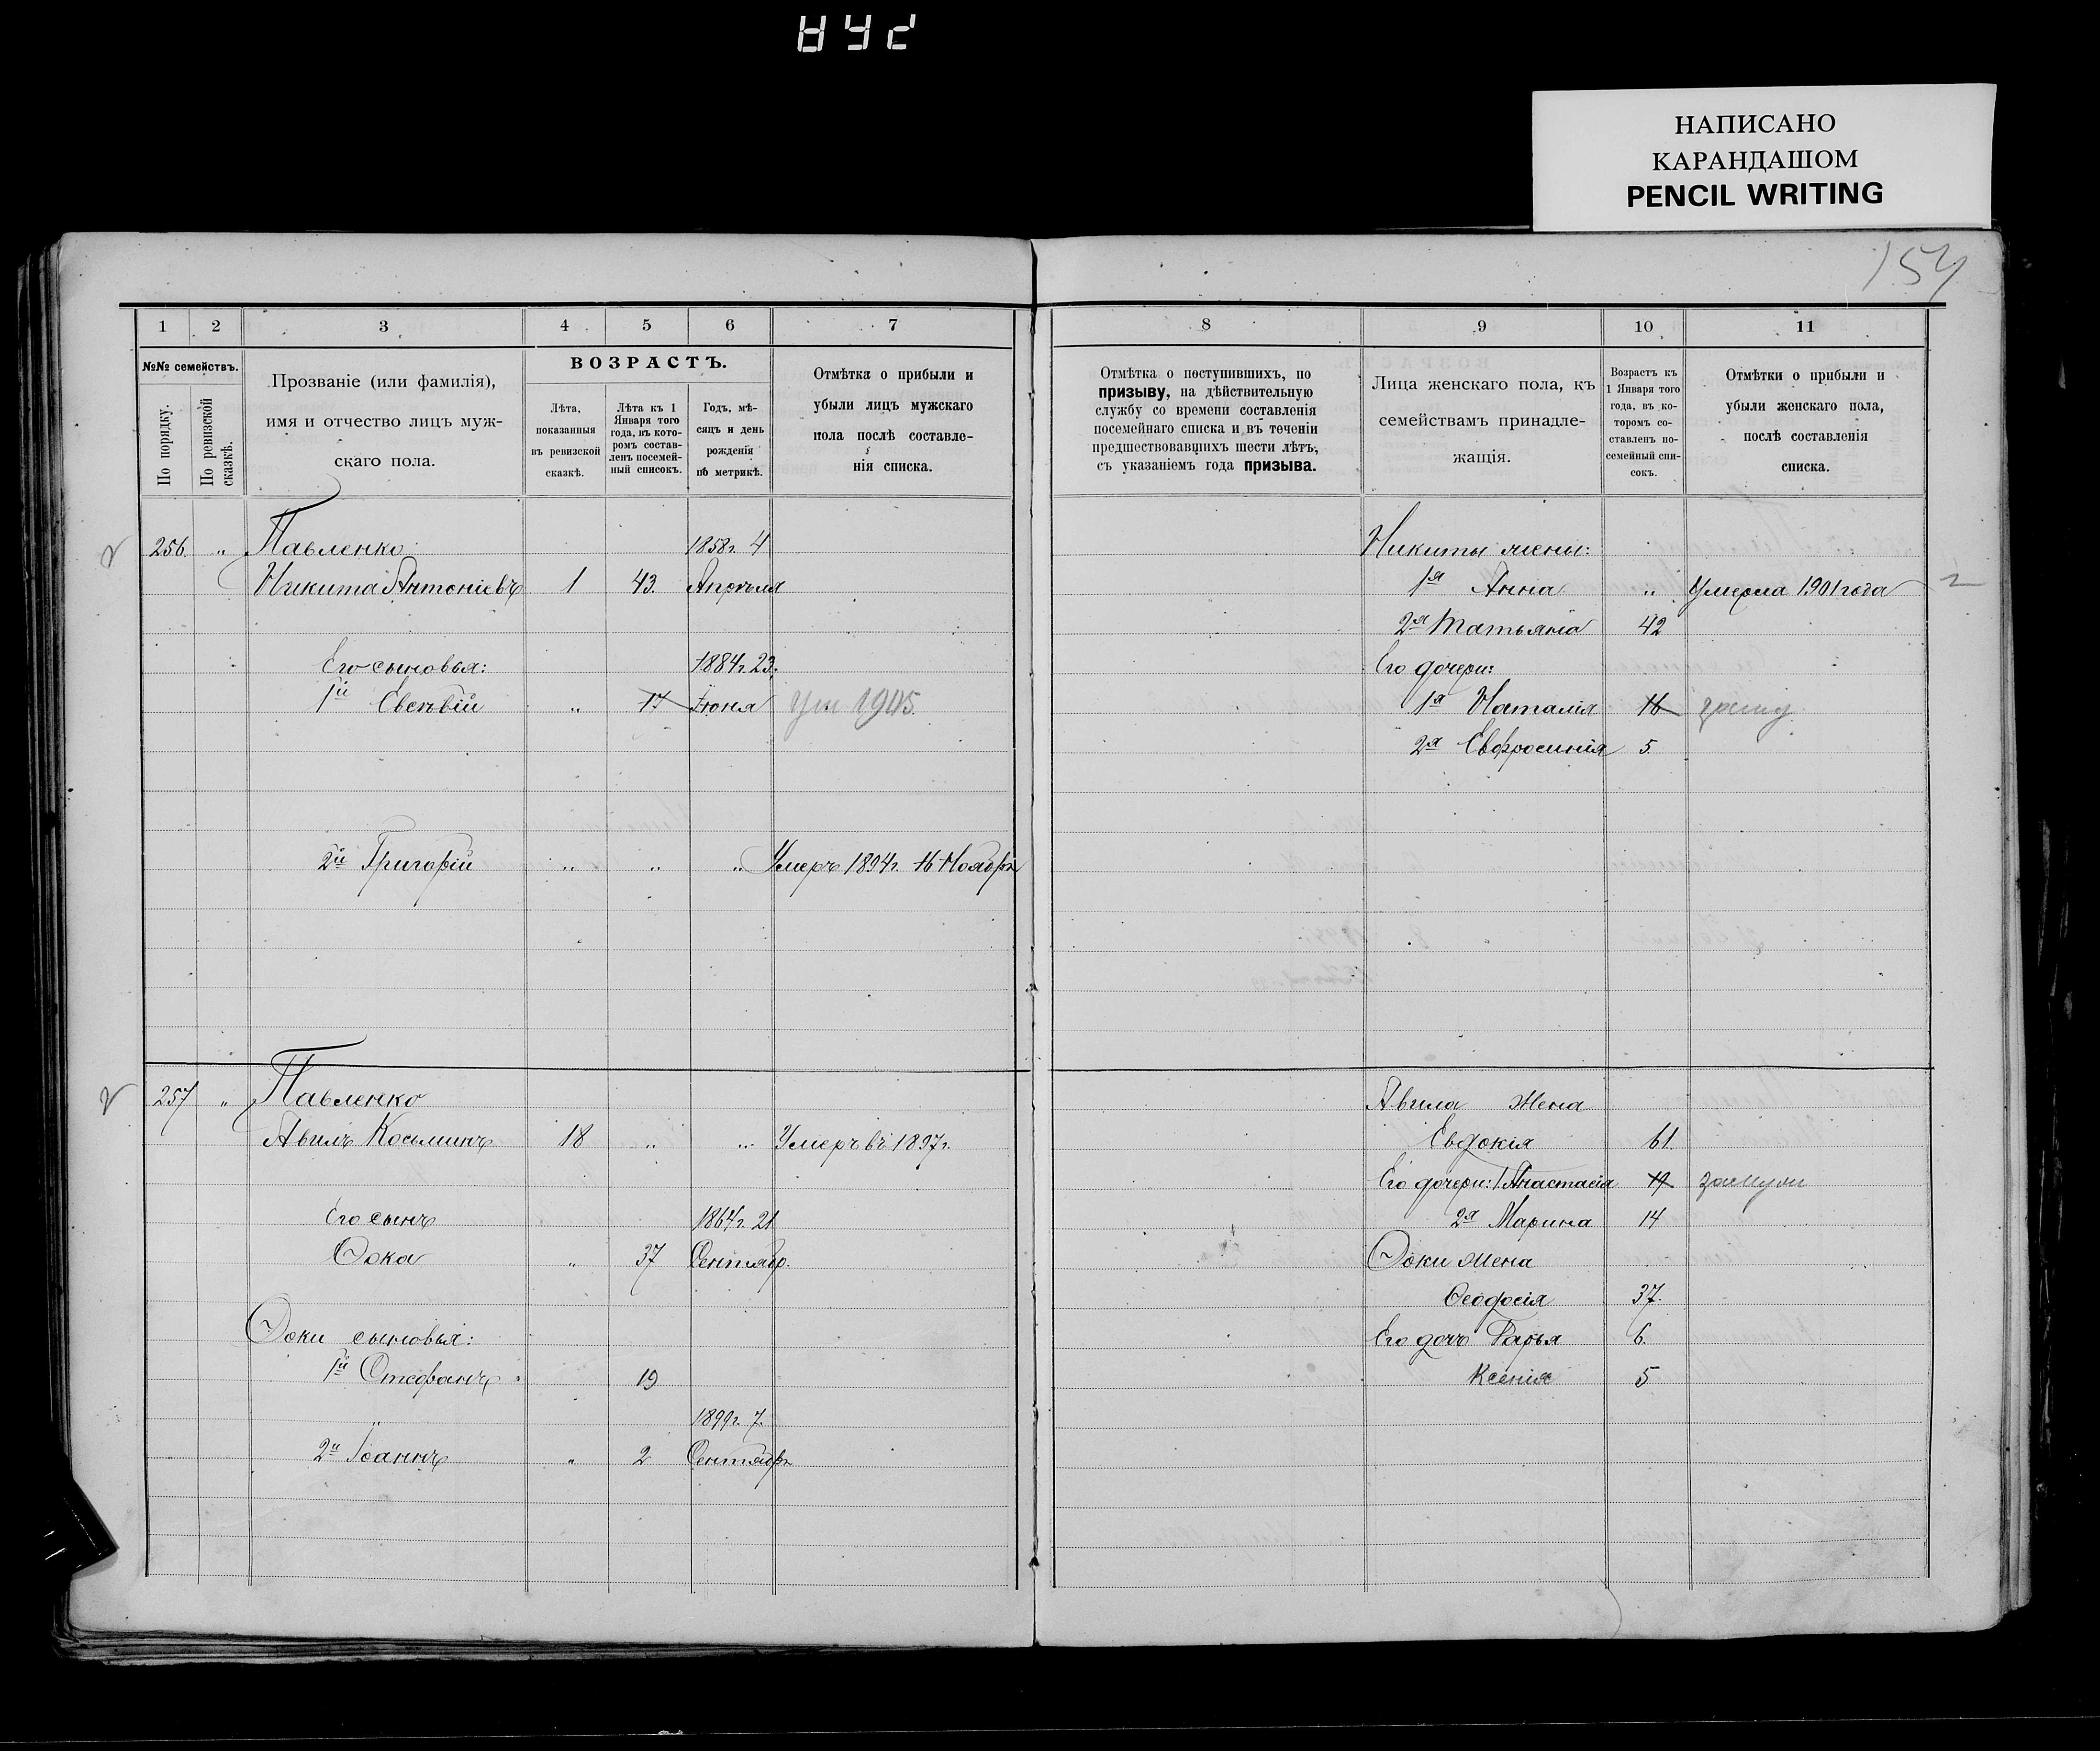 НАПИСАНО
КАРАНДАШОМ
PENCIL WRITING
154
1 2 3 4 5 6 7
№№ семействъ.
По порядку.
По ревизской сказкѣ.
Прозваніе (или фамилія),
имя и отчество лицъ муж-
скаго пола.
ВОЗРАСТЪ.
Лѣта,
показанныя
въ ревизской
сказкѣ.
Лѣта къ 1
Января того
года, въ кото-
ромъ состав-
ленъ посемей-
ный списокъ.
Годъ, мѣ-
сяцъ и день
рожденія
по метрикѣ.
Отмѣтка о прибыли и
убыли лицъ мужскаго
пола послѣ составле-
нія списка.
256. " Павленко 1858г. 4
Никита Антоніевъ 1 43. Апрѣля
Его сыновья: 1884г. 23.
1й Евсѣвій " 17 Іюня Ум 1905
2й Григорій " " " Умеръ 1894г. 16 Ноября
257 " Павленко
Авилъ Косьминъ 18 " " Умеръ въ 1897г.
Его сынъ 1864г. 21
Фока " 37 Сентябр.
Фоки сыновья:
1й Стефанъ 19
" 1899г. 7.
2й Іоаннъ " 2 Сентябр.
8 9 10 11
Отмѣтка о поступившихъ, по
призыву, на дѣйствительную
службу со времени составленія
посемейнаго списка и въ теченіи
предшествовавшихъ шести лѣтъ,
съ указаніемъ года призыва.
Лица женскаго пола, къ
семействамъ принадле-
жащія.
Возрастъ къ
1 Января того
года, въ ко-
торомъ со-
ставленъ по-
семейный спи-
сокъ.
Отмѣтки о прибыли и
убыли женскаго пола,
послѣ составленія
списка.
Никиты жены:
1я Анна " Умерла 1901 года
2я Татьяна 42
Его дочери:
1я Наталія 16
2я Евфросинія 5.
Авила Жена
Евдокія 61.
Его дочери: 1 Анастасія 19 замужи
2я Марина 14
Фоки Жена
Феодосія 37.
Его дочь Дарья 6.
Ксенія 5